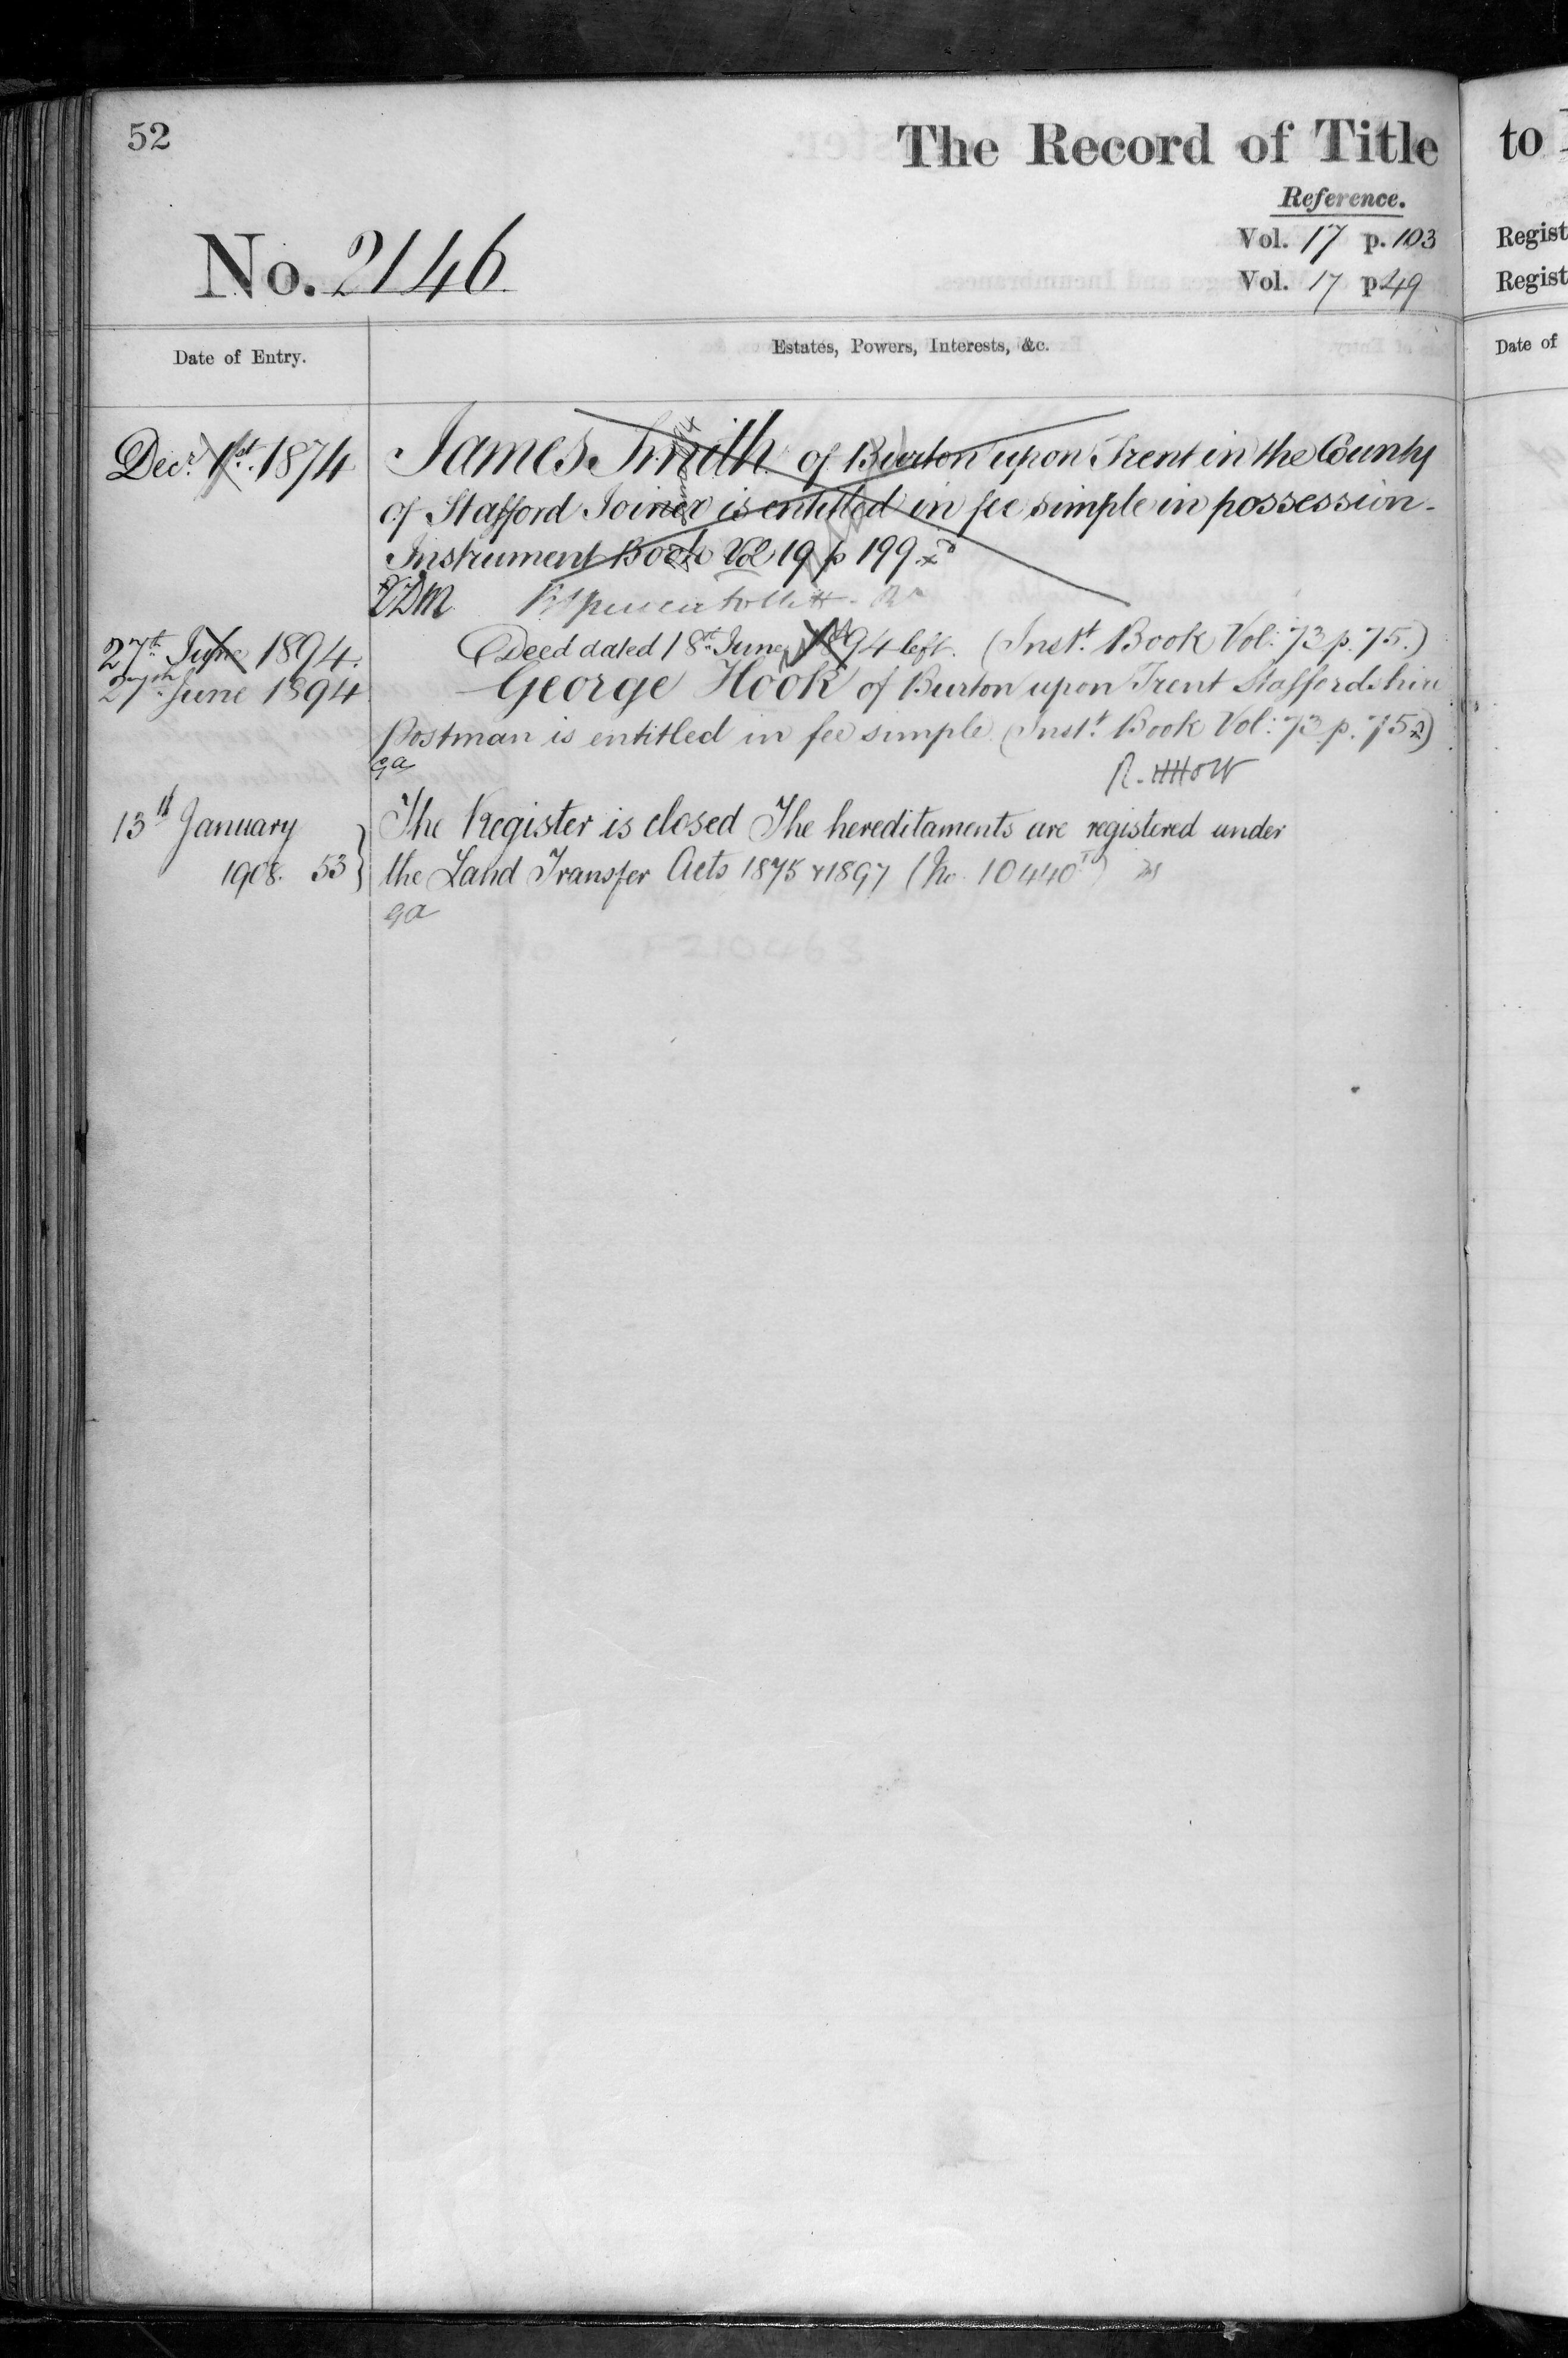 52
The Record of Title
Reference.
No. 2146
Vol. 17 p. 103
Vol. 17 p. 49
Date of Entry.
Estates, Powers, Interests, &c.
Decr. 1st. 1874
James Smith of Burton upon Trent in the County
of Stafford Joiner is entitled in fee simple in possession-
Instrument Book Vol 19 p 199
27th June 1894.
Deed dated 18th June 1894 left. (Inst. Book Vol: 73 p. 75.)
27th June 1894
George Hook of Burton upon Trent Staffordshire
Postman is entitled in fee simple (Inst. Book Vol: 73 p. 75)
ga
13th January
1908. 53
The Register is closed The hereditaments are registered under
the Land Transfer Acts 1875 & 1897 (No. 10440)
ga
No SF210463
to
Regist
Regist
Date of